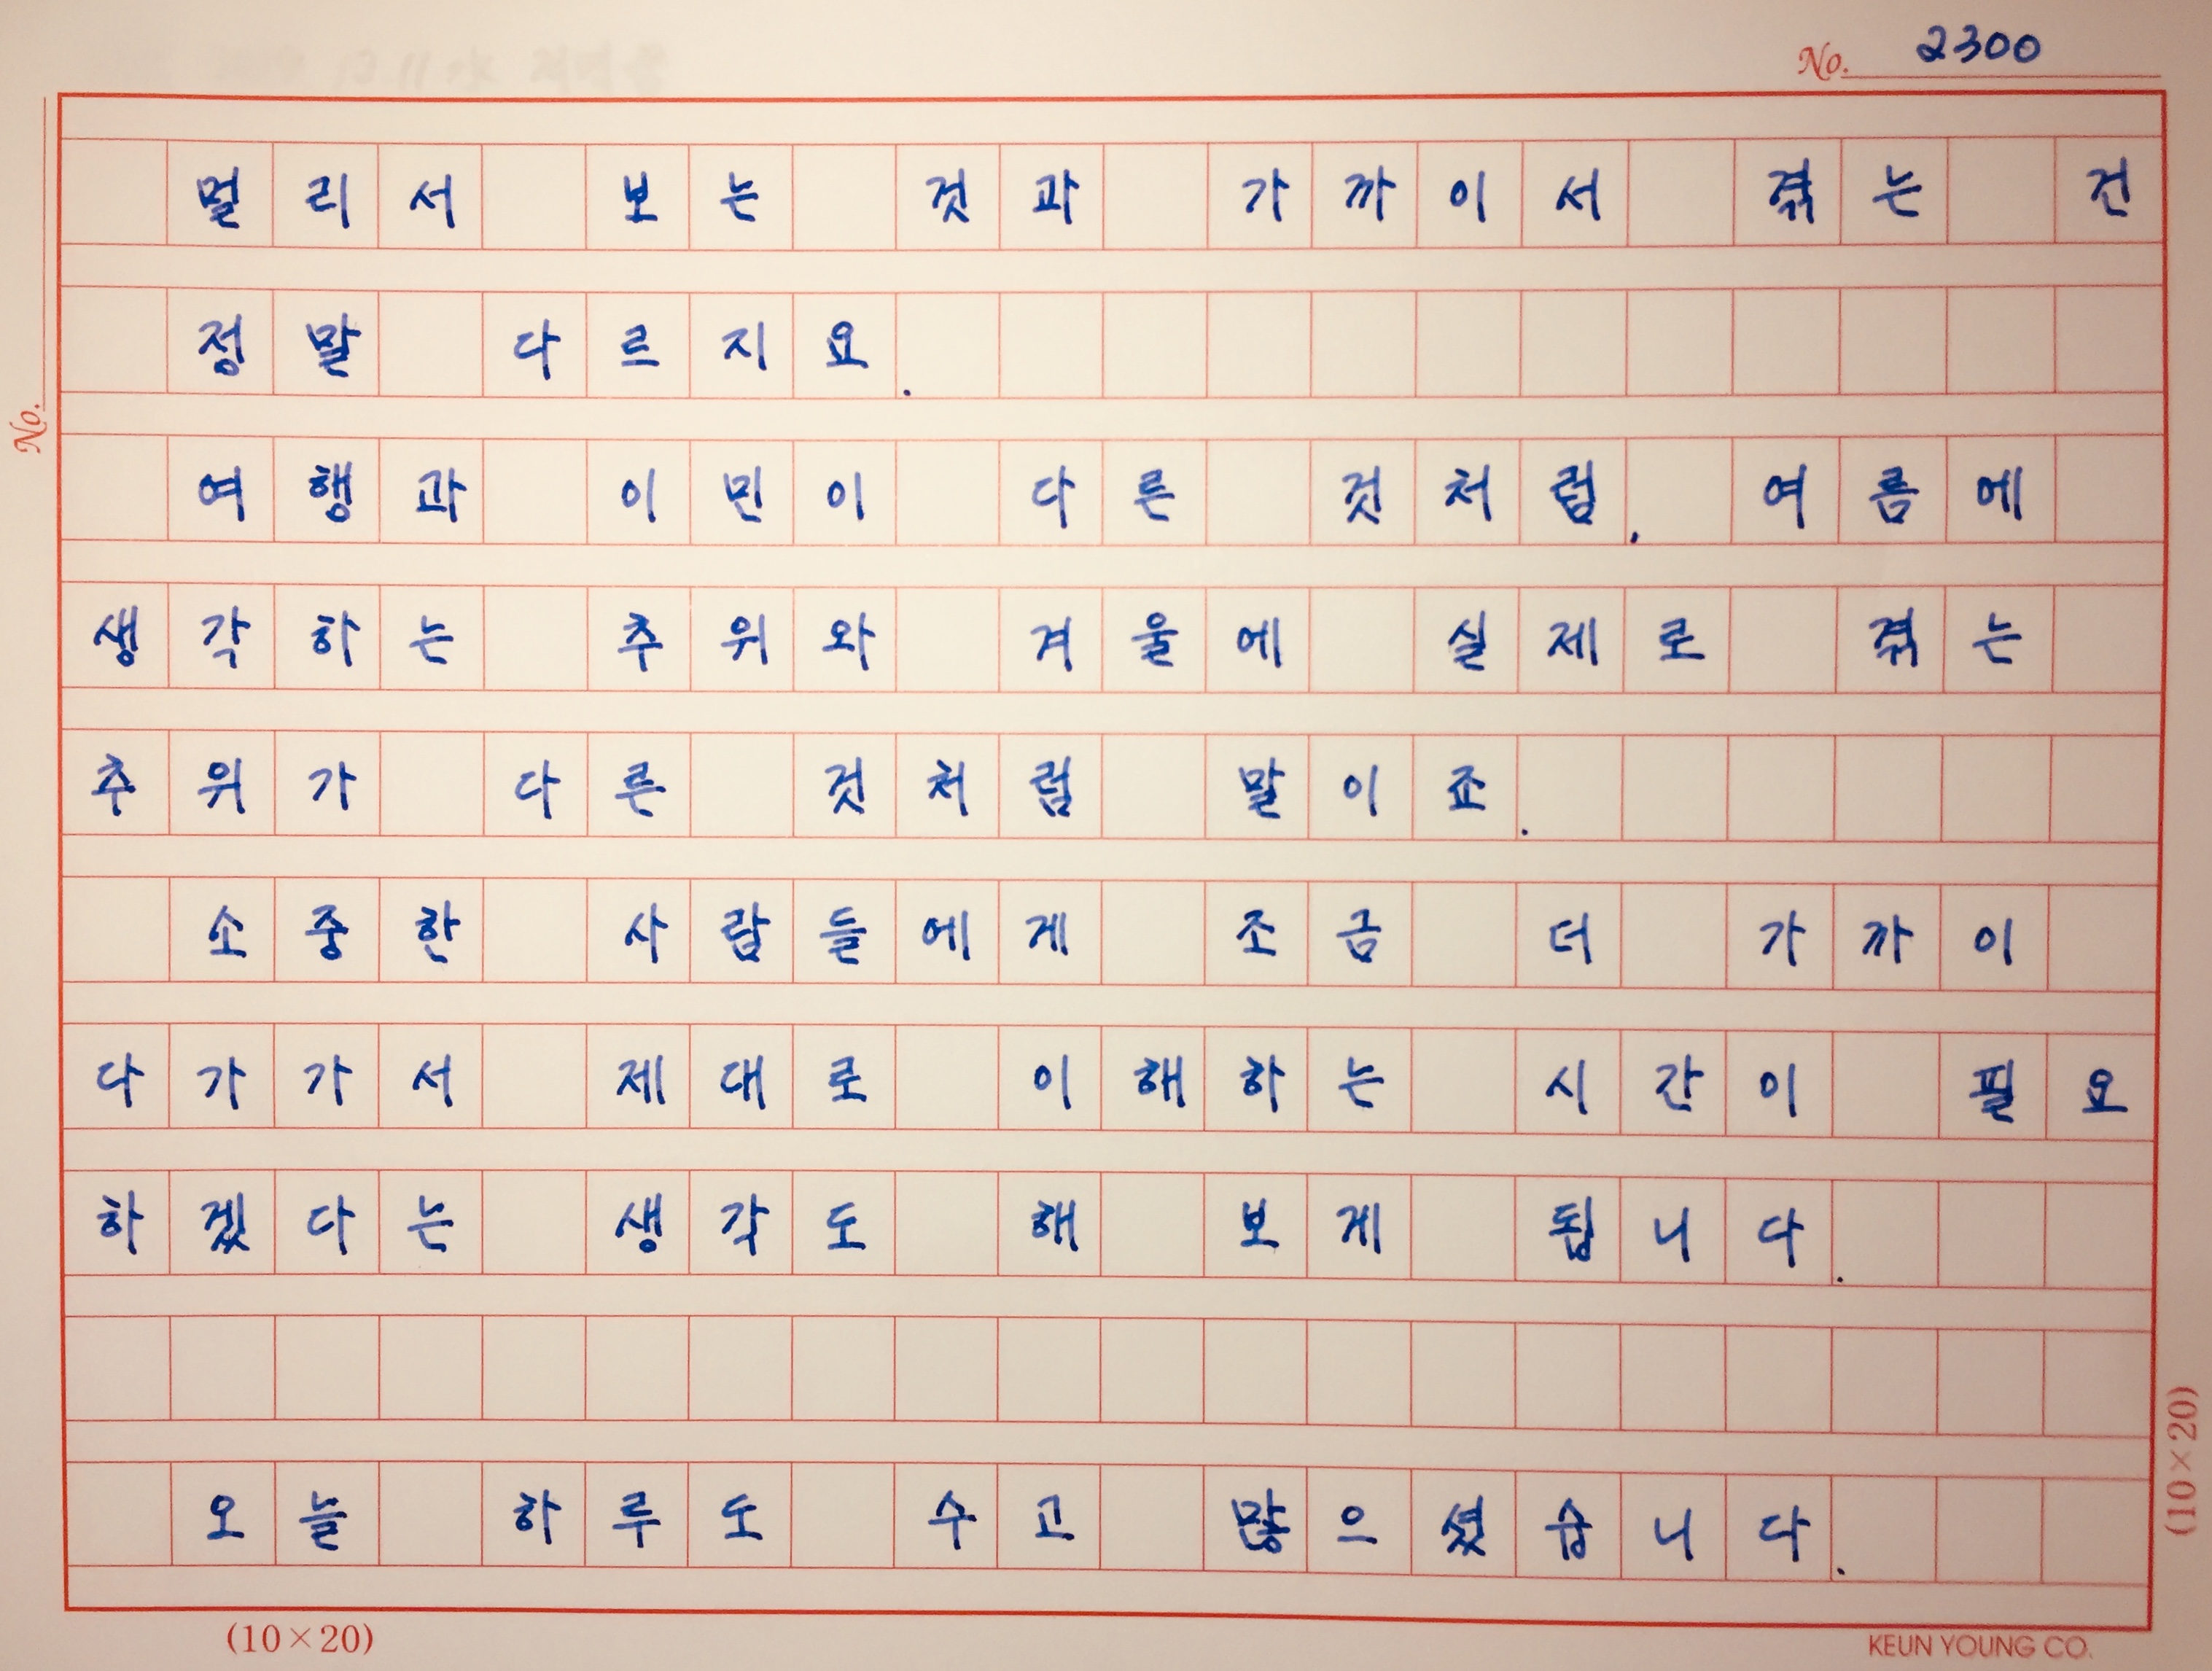 No. 2300
멀리서 보는 것과 가까이서 겪는 건
정말 다르지요.
No.
여행과 이민이 다른 것처럼, 여름에
생각하는 추위와 겨울에 실제로 겪는
추위가 다른 것처럼 말이죠.
소중한 사람들에게 조금 더 가까이
다가가서 제대로 이해하는 시간이 필요
하겠다는 생각도 해 보게 됩니다.
오늘 하루도 수고 많으셨습니다.
(10×20)
(10×20)
KEUN YOUNG CO.